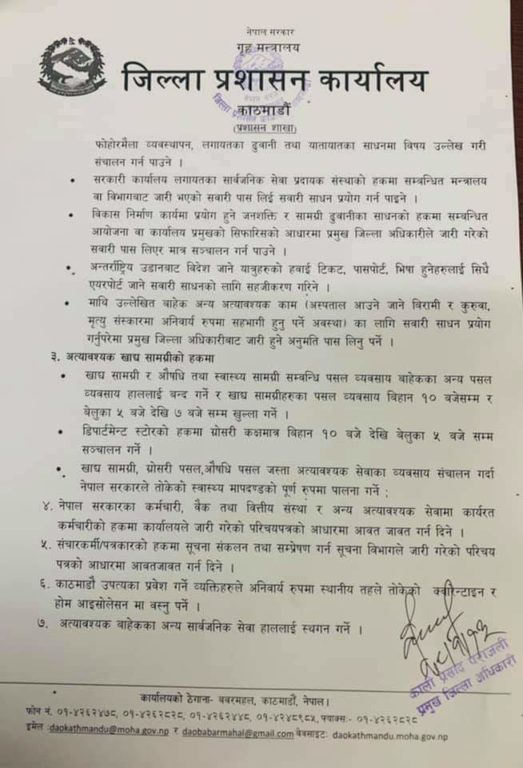 नेपाल सरकार
गृह मन्त्रालय
जिल्ला प्रशासन कार्यालय
काठमाडौं
(प्रशासन शाखा)
फोहोरमैला व्यवस्थापन, लगायतका ढुवानी तथा यातायातका साधनमा विषय उल्लेख गरी
संचालन गर्न पाउने ।
• सरकारी कार्यालय लगायतका सार्वजनिक सेवा प्रदायक संस्थाको हकमा सम्बन्धित मन्त्रालय
वा विभागबाट जारी भएको सवारी पास लिई सवारी साधन प्रयोग गर्न पाइने ।
• विकास निर्माण कार्यमा प्रयोग हुने जनशक्ति र सामग्री ढुवानीका साधनको हकमा सम्बन्धित
आयोजना वा कार्यालय प्रमुखको सिफारिसको आधारमा प्रमुख जिल्ला अधिकारीले जारी गरेको
सवारी पास लिएर मात्र संचालन गर्न पाउने ।
• अन्तर्राष्ट्रिय उडानबाट विदेश जाने यात्रुहरुको हवाई टिकट, पासपोर्ट, भिषा हुनेहरुलाई सिधै
एयरपोर्ट जाने सवारी साधनको लागि सहजीकरण गरिने ।
• माथि उल्लेखित बाहेक अन्य अत्यावश्यक काम (अस्पताल आउने जाने बिरामी र कुरुवा,
मृत्यु संस्कारमा अनिवार्य रुपमा सहभागी हुनु पर्ने अवस्था) का लागि सवारी साधन प्रयोग
गर्नुपरेमा प्रमुख जिल्ला अधिकारीबाट जारी हुने अनुमति पास लिनु पर्ने ।
३. अत्यावश्यक खाद्य सामग्रीको हकमा
• खाद्य सामग्री र औषधि तथा स्वास्थ्य सामग्री सम्बन्धि पसल व्यवसाय बाहेकका अन्य पसल
व्यवसाय हाललाई बन्द गर्ने र खाद्य सामग्रीहरुका पसल व्यवसाय विहान १० बजेसम्म र
बेलुका ५ बजे देखि ७ बजे सम्म खुल्ला गर्ने ।
• डिपार्टमेन्ट स्टोरको हकमा ग्रोसरी कक्षमात्र विहान १० बजे देखि बेलुका ५ बजे सम्म
सञ्चालन गर्ने ।
• खाद्य सामग्री, ग्रोसरी पसल,औषधि पसल जस्ता अत्यावश्यक सेवाका व्यवसाय संचालन गर्दा
नेपाल सरकारले तोकेको स्वास्थ्य मापदण्डको पूर्ण रुपमा पालना गर्ने ;
४. नेपाल सरकारका कर्मचारी, बैंक तथा वित्तीय संस्था र अन्य अत्यावश्यक सेवामा कार्यरत
कर्मचारीको हकमा कार्यालयले जारी गरेको परिचयपत्रको आधारमा आवत जावत गर्न दिने ।
५. संचारकर्मी/पत्रकारको हकमा सूचना संकलन तथा सम्प्रेषण गर्न सूचना विभागले जारी गरेको परिचय
पत्रको आधारमा आवतजावत गर्न दिने ।
६. काठमाडौं उपत्यका प्रवेश गर्ने व्यक्तिहरुले अनिवार्य रुपमा स्थानीय तहले तोकेको क्वारेन्टाइन र
होम आइसोलेसन मा वस्नु पर्ने ।
७. अत्यावश्यक बाहेकका अन्य सार्वजनिक सेवा हाललाई स्थगन गर्ने ।
काली प्रसाद पराजुली
प्रमुख जिल्ला अधिकारी
कार्यालयको ठेगाना- बबरमहल, काठमाडौं, नेपाल।
फोन नं. ०१-४२६२४७८, ०१-४२६२८२८, ०१-४२६२४४८, ०१-४२४८९८५, फ्याक्सः- ०१-४२६२८२८
इमेल :daokathmandu@moha.gov.np र daobabarmahal@gmail.com वेबसाइटः daokathmandu.moha.gov.np